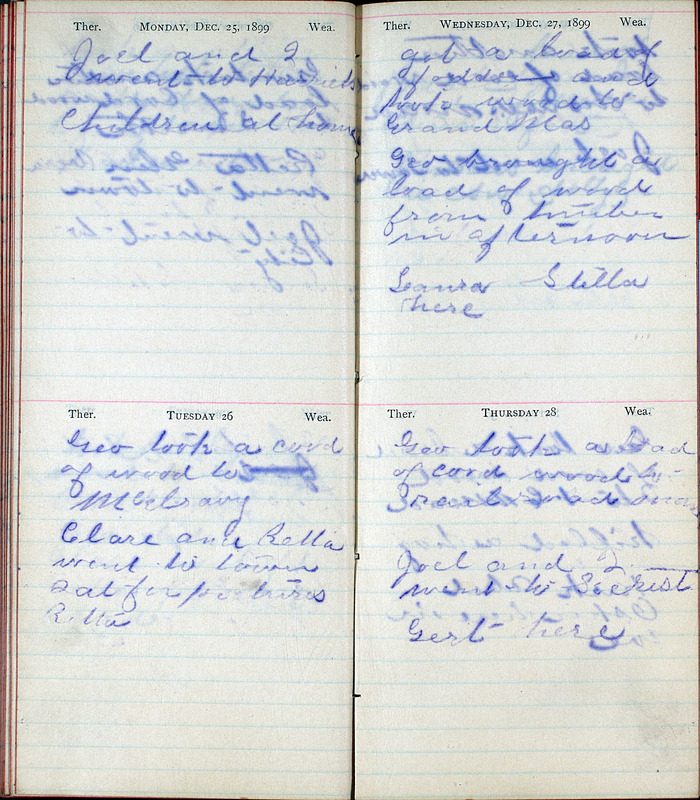 Ther. MONDAY, DEC. 25, 1899 Wea.
Joel and I
went to Harriets
Children at home
Ther. TUESDAY 26 Wea.
Geo took a cord
of wood to
McElravy
Clare and Retta
went to town
sat for pictures
Retta
Ther. WEDNESDAY, DEC. 27, 1899 Wea.
got a load of
fodder and
took wood to
Grand Mas
Geo brought a
load of wood
from timber
in afternoon
Laura Stella
here
Ther. THURSDAY 28 Wea.
Geo took a load
of cord wood to
rail road man
Joel and I
went to
Gert here